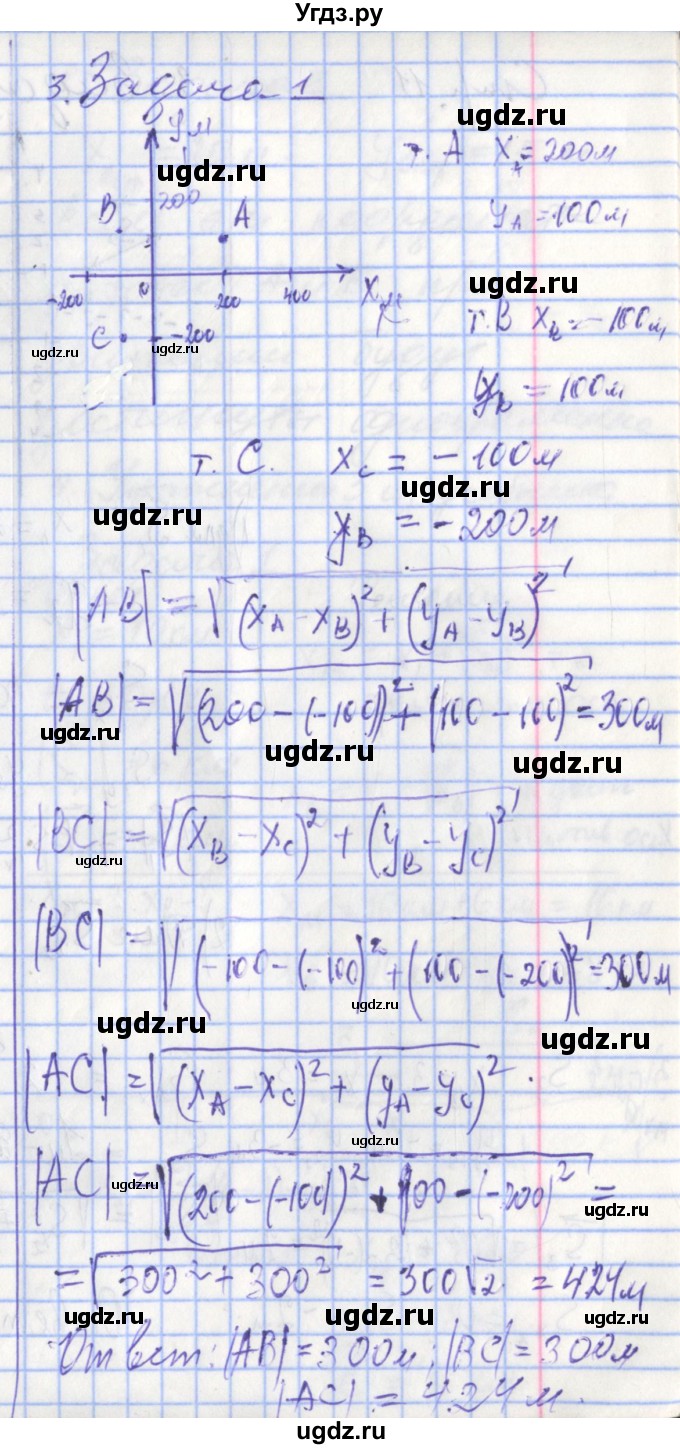 Угдз.ру
3. Задача 1
y, м
ugdz.ru
т. A x_A = 200м
200
B A
y_A = 100м
-200 0 200 400 X, м
ugdz.ru
т. B x_B = -100м
C -200
ugdz.ru ugdz.ru
y_B = 100м
т. C. x_C = -100м
ugdz.ru ugdz.ru
y_B = -200м
|AB| = √((x_A - x_B)² + (y_A - y_B)²)
|AB| = √((200 - (-100))² + (100 - 100)²) = 300м
ugdz.ru ugdz.ru ugdz.ru
|BC| = √((x_B - x_C)² + (y_B - y_C)²)
ugdz.ru
|BC| = √((-100 - (-100)² + (100 - (-200)²) = 300м
ugdz.ru
ugdz.ru ugdz.ru
|AC| = √((x_A - x_C)² + (y_A - y_C)²
ugdz.ru
|AC| = √((200 - (-100))² + (100 - (-200)²) =
ugdz.ru ugdz.ru
= √(300² + 300²) = 300√2 = 424м
ugdz.ru ugdz.ru
Ответ: |AB| = 300м; |BC| = 300м
|AC| = 424м.
ugdz.ru